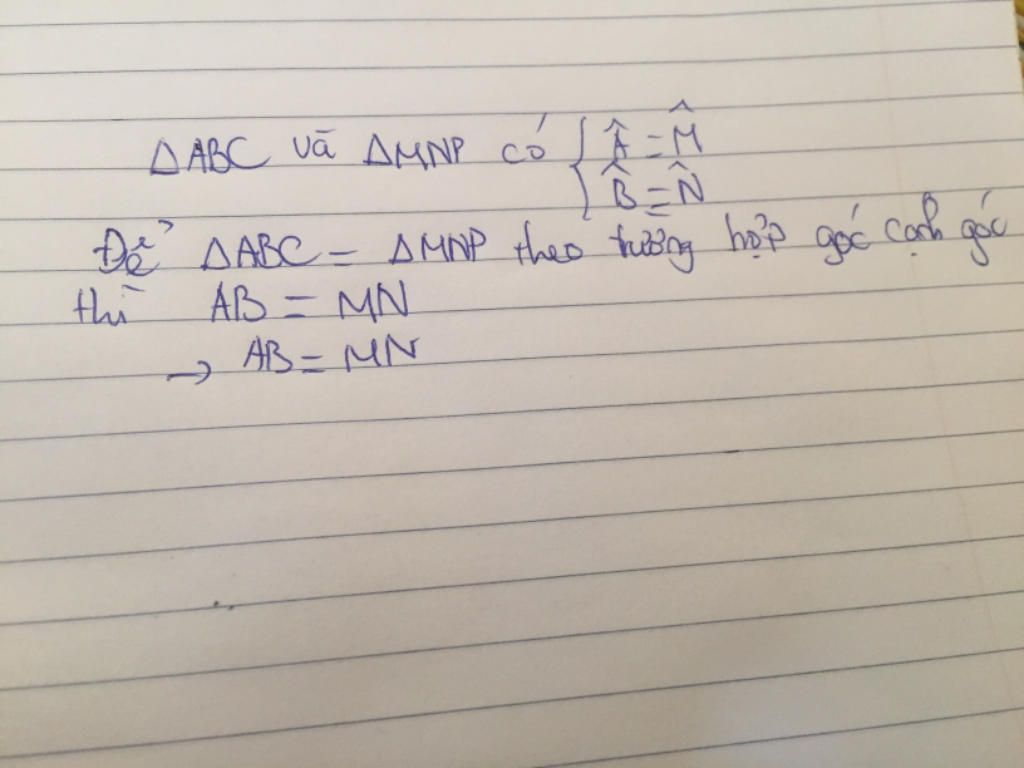 ΔABC và ΔMNP có { Â = M̂
B̂ = N̂
Để ΔABC = ΔMNP theo trương hợp góc cạnh góc
thì AB = MN
→ AB = MN